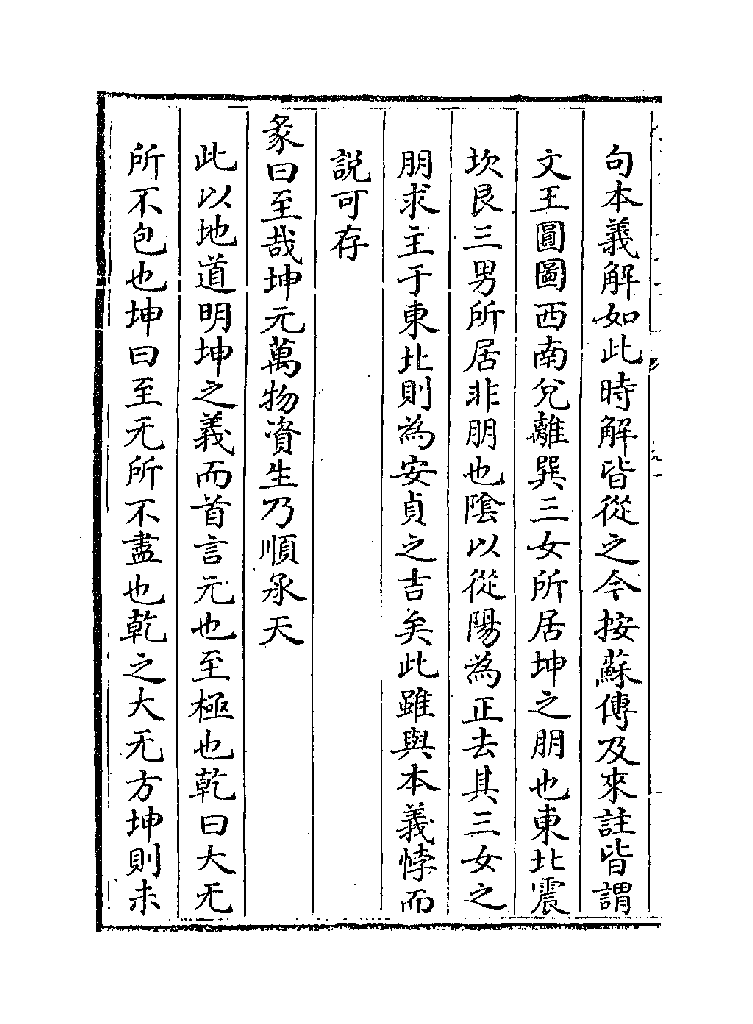 句本義解如此時解皆從之今按蘇傳及來註皆謂
文王圓圖西南兌離巽三女所居坤之朋也東北震
坎艮三男所居非朋也隂以從陽為正去其三女之
朋求主于東北則為安貞之吉矣此雖與本義悖而
説可存
彖曰至哉坤元萬物資生乃順承天
此以地道明坤之義而首言元也至極也乾曰大无
所不包也坤曰至无所不盡也乾之大无方坤則未